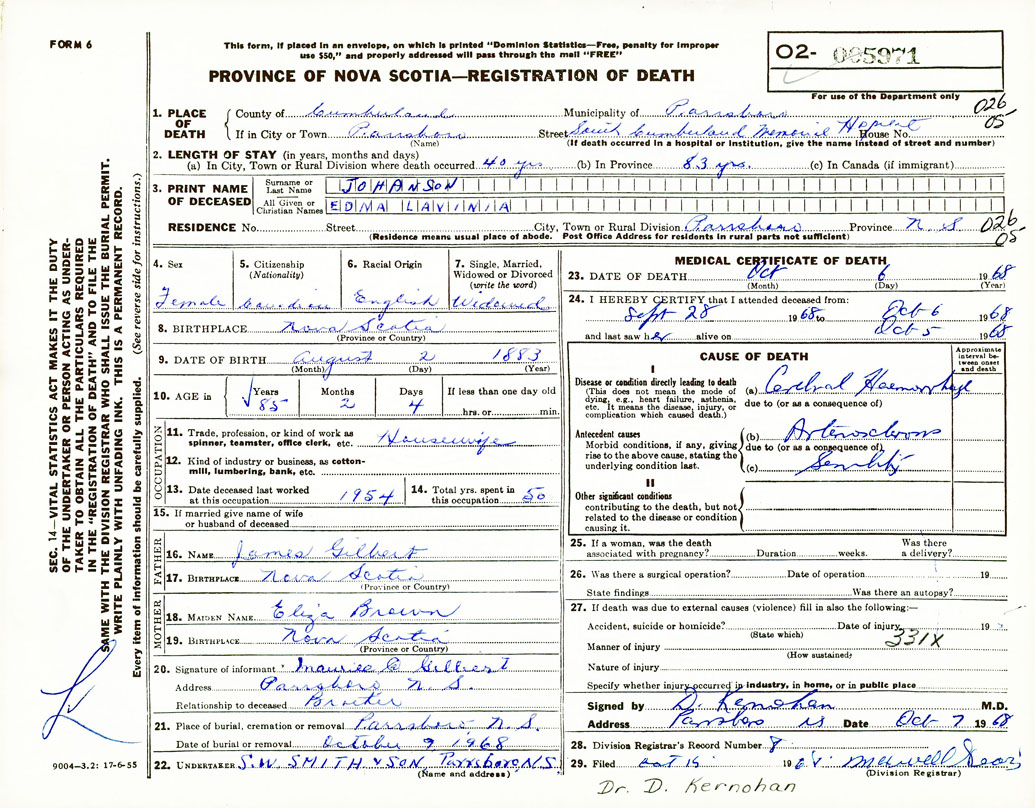 FORM 6
This form, if placed in an envelope, on which is printed "Dominion Statistics—Free, penalty for improper
use $50," and properly addressed will pass through the mail "FREE"
O2- 005971
PROVINCE OF NOVA SCOTIA—REGISTRATION OF DEATH
For use of the Department only
026
05
1. PLACE OF DEATH
County of Cumberland Municipality of Parrsboro
If in City or Town Parrsboro Street South Cumberland Memorial Hospital House No.
(Name) (If death occurred in a hospital or institution, give the name instead of street and number)
2. LENGTH OF STAY (in years, months and days)
(a) In City, Town or Rural Division where death occurred 40 yrs (b) In Province 83 yrs. (c) In Canada (if immigrant)
3. PRINT NAME OF DECEASED
Surname or Last Name JOHANSON
All Given or Christian Names EDMA LAVINIA
RESIDENCE No. Street City, Town or Rural Division Parrsboro Province N.S
(Residence means usual place of abode. Post Office Address for residents in rural parts not sufficient)
026
05
SEC. 14—VITAL STATISTICS ACT MAKES IT THE DUTY
OF THE UNDERTAKER OR PERSON ACTING AS UNDER-
TAKER TO OBTAIN ALL THE PARTICULARS REQUIRED
IN THE "REGISTRATION OF DEATH" AND TO FILE THE
SAME WITH THE DIVISION REGISTRAR WHO SHALL ISSUE THE BURIAL PERMIT.
WRITE PLAINLY WITH UNFADING INK. THIS IS A PERMANENT RECORD.
Every item of information should be carefully supplied. (See reverse side for instructions.)
4. Sex 5. Citizenship 6. Racial Origin 7. Single, Married,
(Nationality) Widowed or Divorced
(write the word)
Female Canadian English Widowed
8. BIRTHPLACE Nova Scotia
(Province or Country)
9. DATE OF BIRTH August 2 1883
(Month) (Day) (Year)
10. AGE in Years Months Days If less than one day old
85 2 4 hrs. or min.
OCCUPATION
11. Trade, profession, or kind of work as
spinner, teamster, office clerk, etc. Housewife
12. Kind of industry or business, as cotton-
mill, lumbering, bank, etc.
13. Date deceased last worked
at this occupation 1954
14. Total yrs. spent in
this occupation 50
15. If married give name of wife
or husband of deceased
FATHER
16. NAME James Gilbert
17. BIRTHPLACE Nova Scotia
(Province or Country)
MOTHER
18. MAIDEN NAME Eliza Brown
19. BIRTHPLACE Nova Scotia
(Province or Country)
20. Signature of informant Maurice C Gilbert
Address Parrsboro N.S.
Relationship to deceased Brother
21. Place of burial, cremation or removal Parrsboro N.S.
Date of burial or removal October 9 1968
22. UNDERTAKER S.W. SMITH & SON Parrsboro, N.S.
(Name and address)
9004-3.2: 17-6-55
MEDICAL CERTIFICATE OF DEATH
23. DATE OF DEATH Oct 6 1968
(Month) (Day) (Year)
24. I HEREBY CERTIFY that I attended deceased from:
Sept 28 1968 to Oct 6 1968
and last saw her alive on Oct 5 1968
CAUSE OF DEATH
Approximate interval between onset and death
I
Disease or condition directly leading to death
(This does not mean the mode of
dying, e.g., heart failure, asthenia,
etc. It means the disease, injury, or
complication which caused death.)
(a) Cerebral Haemorrhage
due to (or as a consequence of)
Antecedent causes
Morbid conditions, if any, giving
rise to the above cause, stating the
underlying condition last.
(b) Arteriosclerosis
due to (or as a consequence of)
(c) Senility
II
Other significant conditions
contributing to the death, but not
related to the disease or condition
causing it.
25. If a woman, was the death Was there
associated with pregnancy? Duration weeks. a delivery?
26. Was there a surgical operation? Date of operation 19
State findings Was there an autopsy?
27. If death was due to external causes (violence) fill in also the following:—
Accident, suicide or homicide? Date of injury 19
(State which)
331X
Manner of injury
(How sustained)
Nature of injury
Specify whether injury occurred in industry, in home, or in public place
Signed by D. Kernohan M.D.
Address Parrsboro NS Date Oct 7 1968
28. Division Registrar's Record Number 8
29. Filed Oct 15 1968 Maxwell
(Division Registrar)
Dr. D. Kernohan